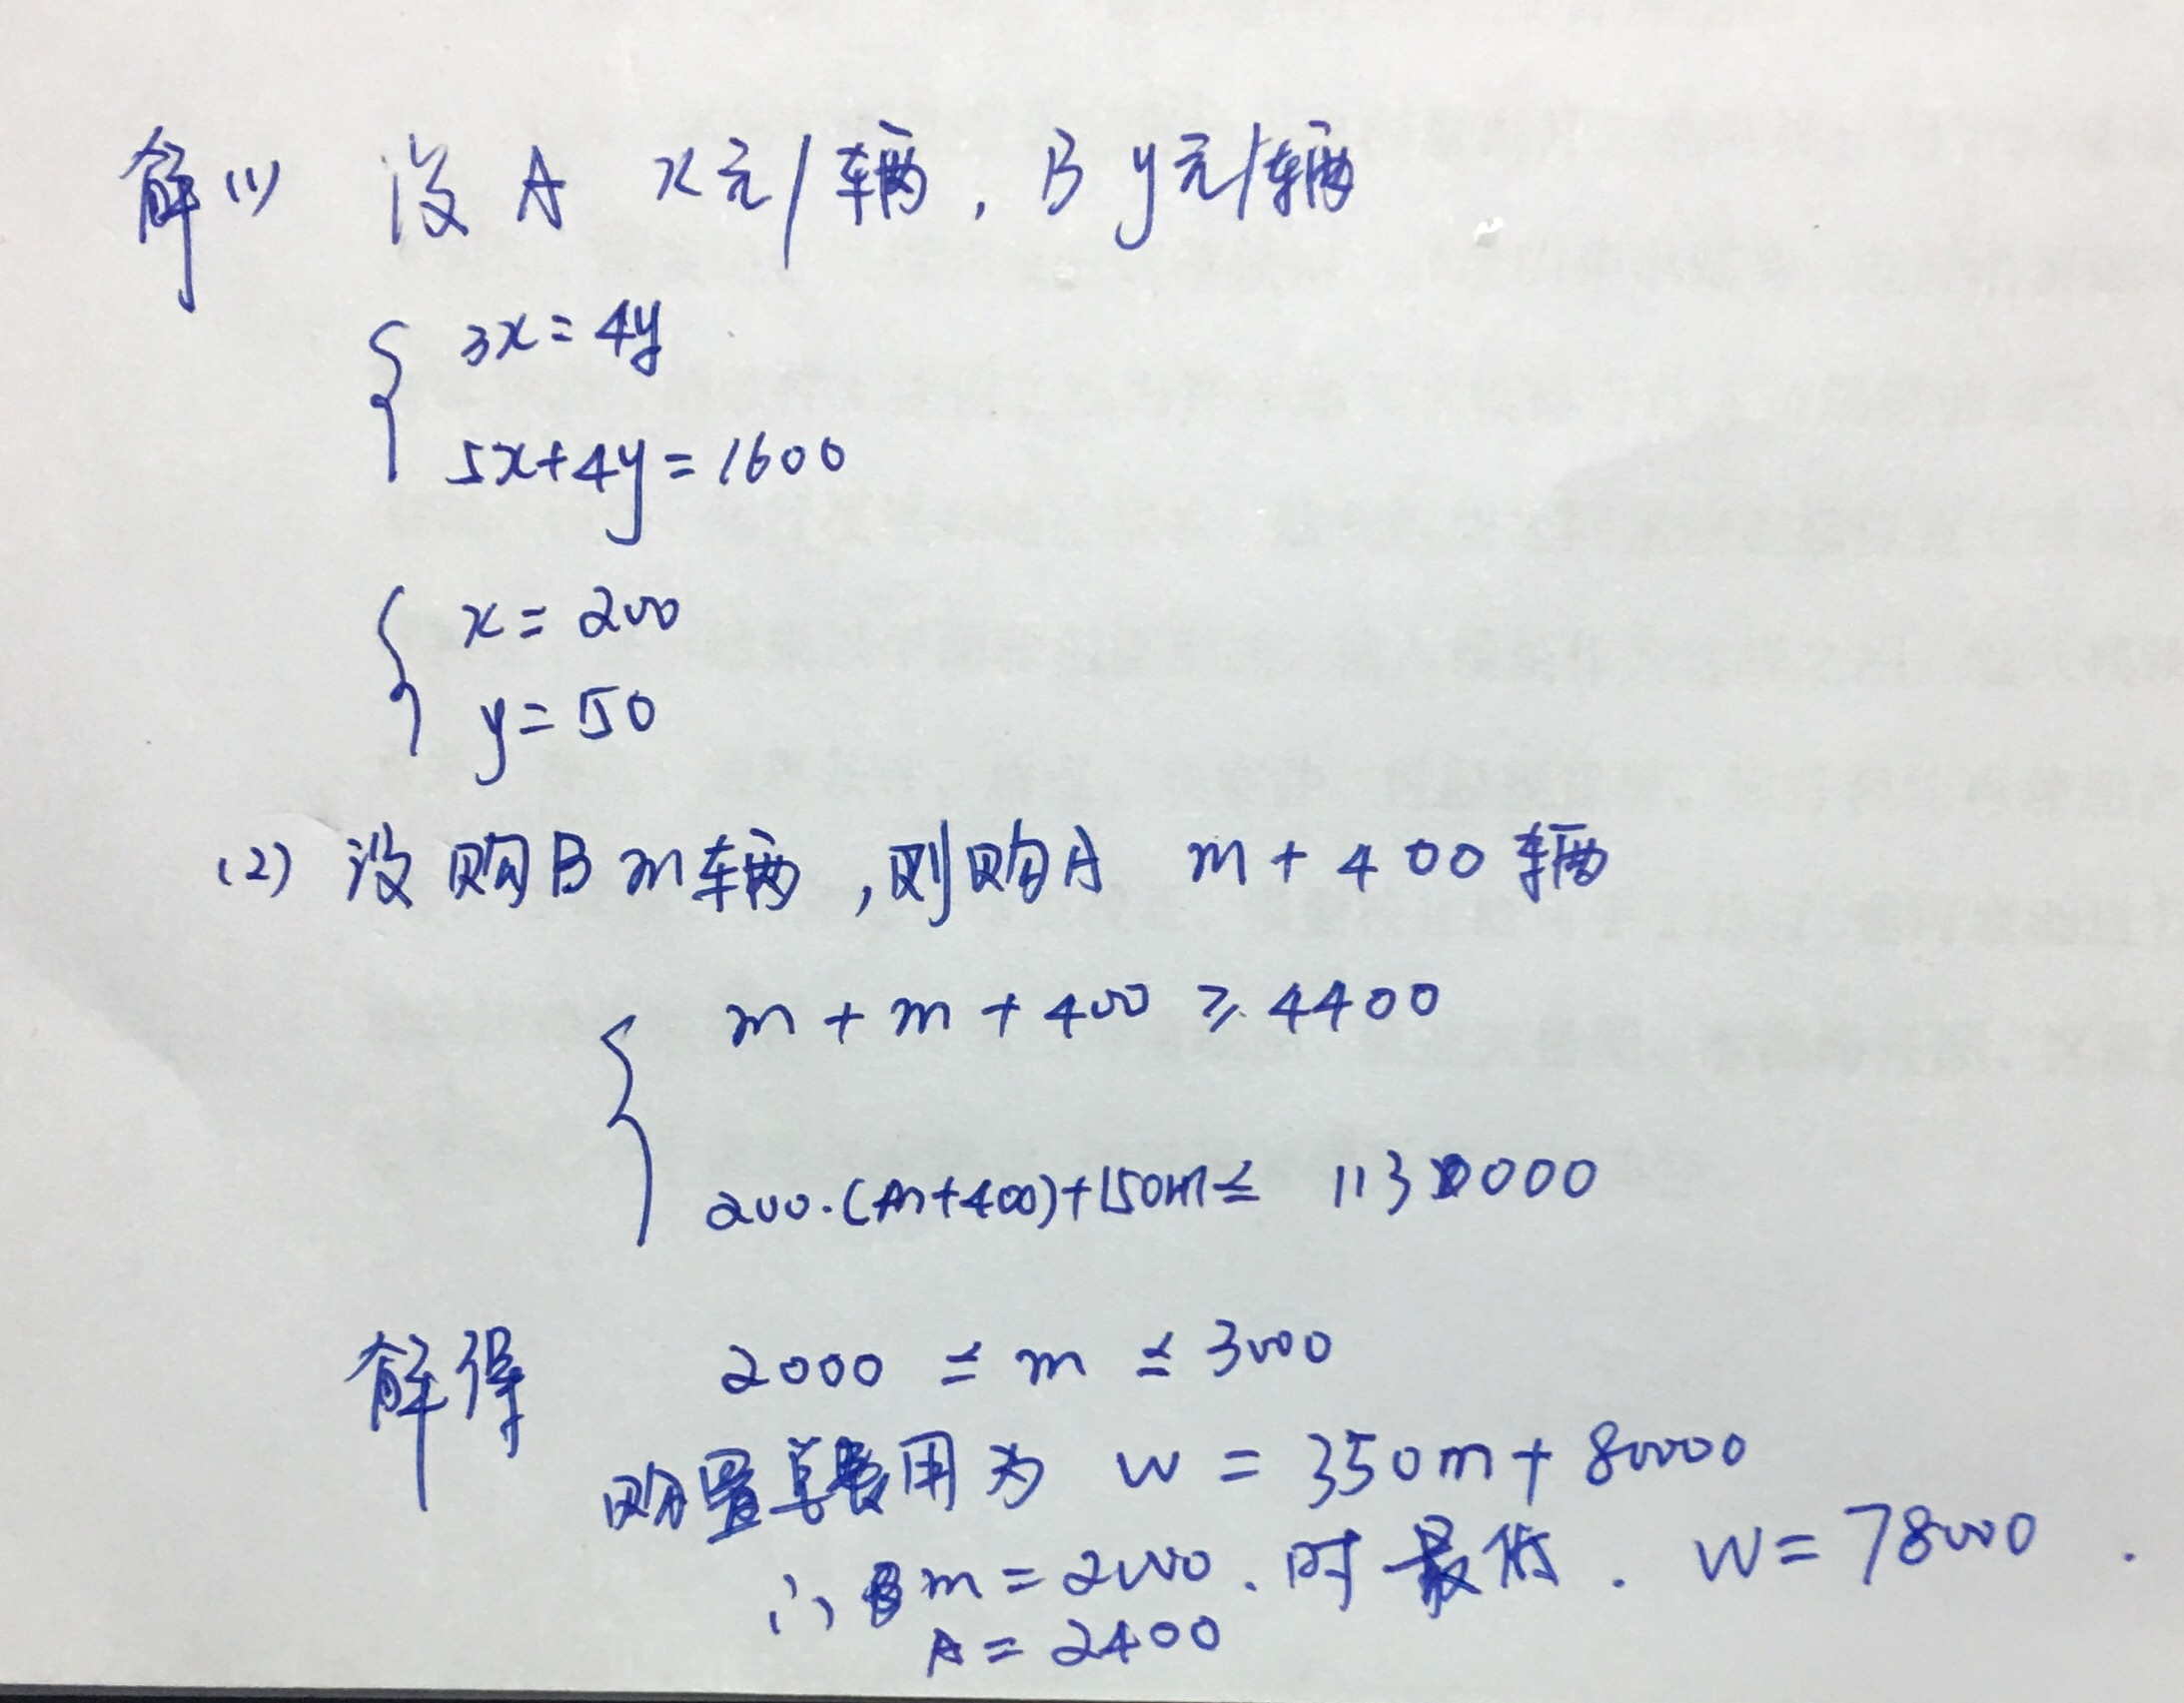 解(1) 设 A x元/辆, B y元/辆
3x=4y
5x+4y=1600
x=200
y=50
(2) 设购B m辆,则购A m+400辆
m+m+400≥4400
200·(m+400)+150m≤1130000
解得 2000≤m≤3000
购置总费用为 w=350m+80000
∴ B m=2000.时最低. W=78000.
A=2400